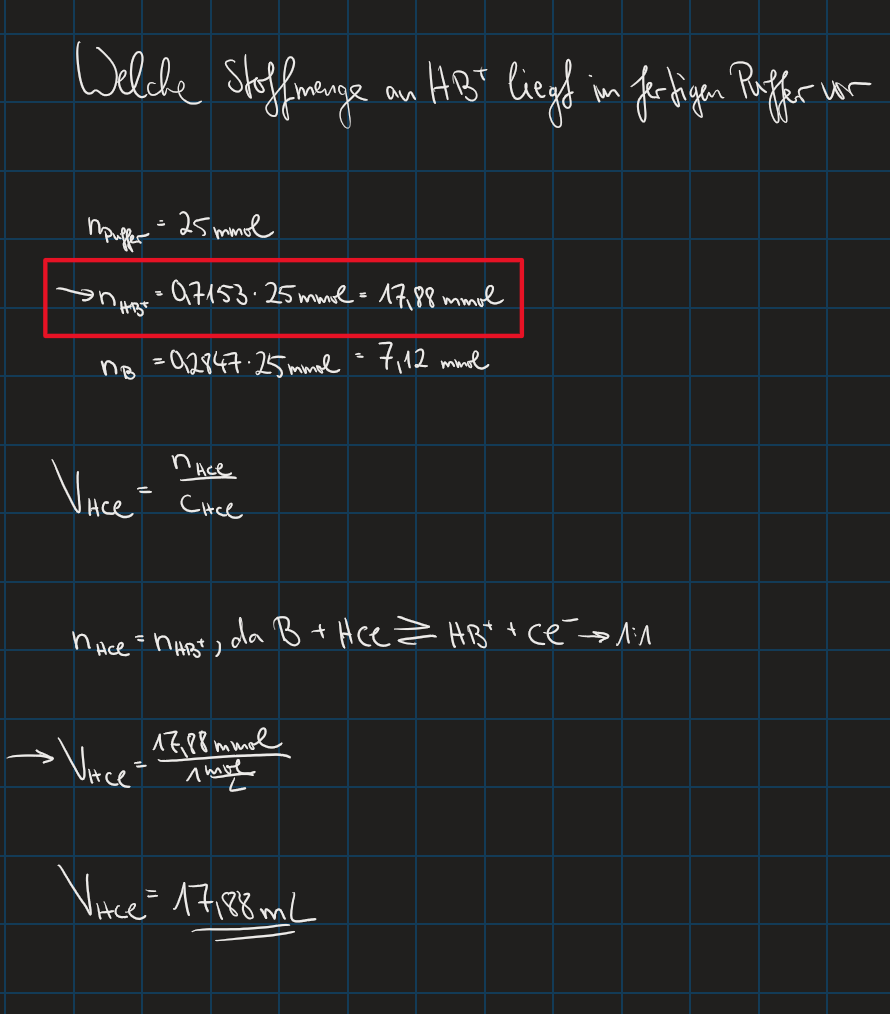 Welche Stoffmenge an HB⁺ liegt im fertigen Puffer vor
n_Puffer = 25 mmol
→ n_HB⁺ = 0,7153 · 25 mmol = 17,88 mmol
n_B = 0,2847 · 25 mmol = 7,12 mmol
V_HCl = n_HCl / c_HCl
n_HCl = n_HB⁺, da B + HCl ⇌ HB⁺ + Cl⁻ → 1:1
→ V_HCl = 17,88 mmol / 1 mol/L
V_HCl = 17,88 mL